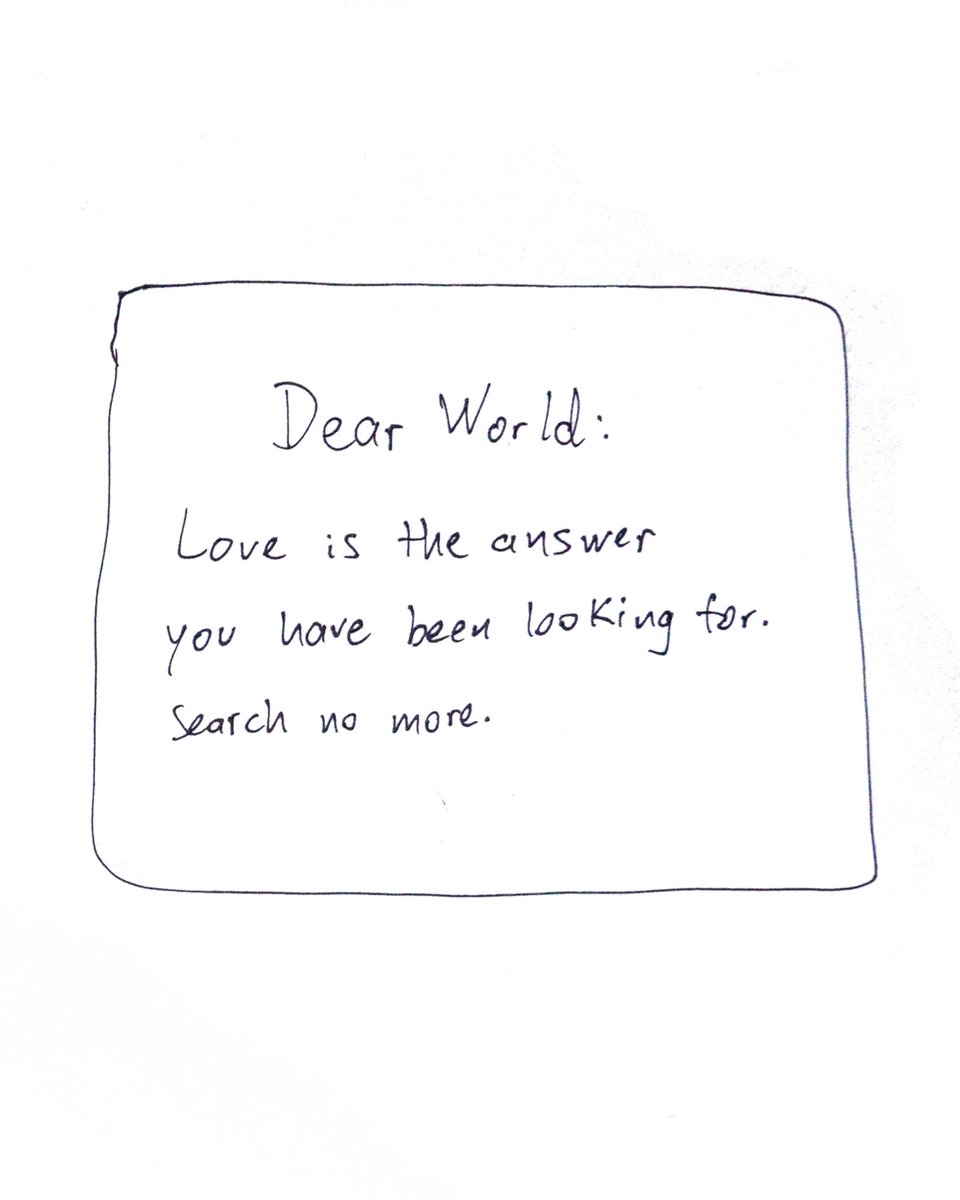 Dear World:
Love is the answer
you have been looking for.
Search no more.